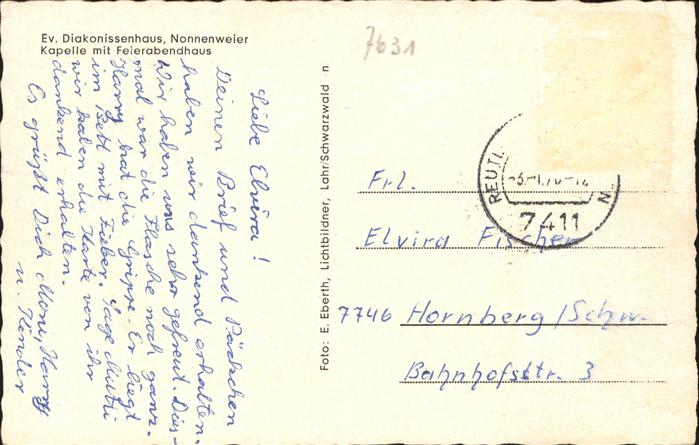 Ev. Diakonissenhaus, Nonnenweier
Kapelle mit Feierabendhaus
7631
Liebe Elvira!
Deinen Brief und Päckchen
haben wir dankend erhalten.
Wir haben uns sehr gefreut. Dies-
mal war die Flasche noch ganz.
Harry hat die Grippe. Er liegt
im Bett mit Fieber. Sage Mutti
wir haben die Karte von ihr
dankend erhalten.
Es grüßt Dich Moni, Harry
u. Kinder
Foto: E. Eberth, Lichtbildner, Lahr/Schwarzwald n
REUTL
N
7411
Frl.
Elvira Fischer
7746 Hornberg/Schw.
Bahnhofsstr. 3